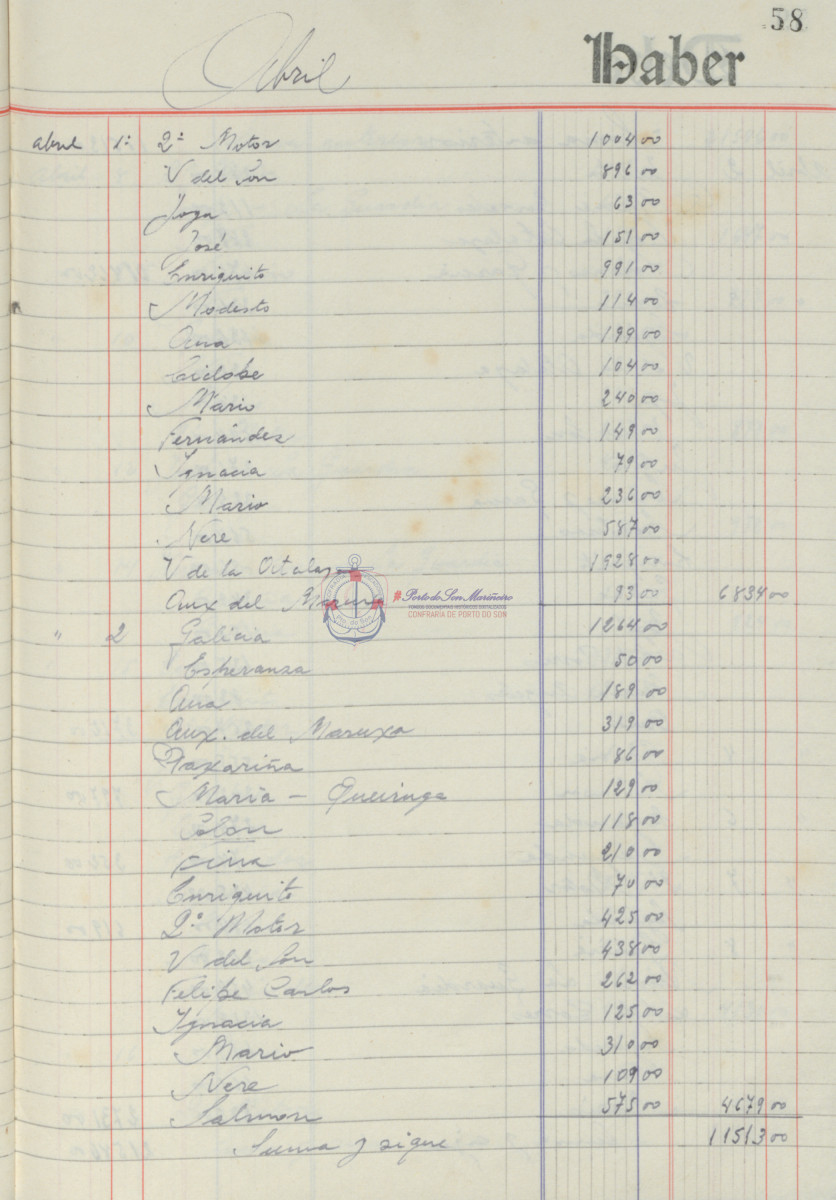 58
Abril
Haber
abril 1º 2º Motor 1004 00
V del Son 896 00
Joga 63 00
José 151 00
Enriquito 991 00
Modesto 114 00
Ana 199 00
Ciclope 104 00
Mario 240 00
Fernández 149 00
Ignacia 79 00
Mario 236 00
Nere 587 00
V de la Atalaya 1928 00
Aux del Maruxa 93 00 6834 00
" 2 Galicia 1264 00
Esperanza 50 00
Ana 189 00
Aux. del Maruxa 319 00
Paxariña 86 00
María - Queiruga 129 00
Colon 118 00
Fina 210 00
Enriquito 70 00
2º Motor 425 00
V del Son 438 00
Felipe Carlos 262 00
Ignacia 125 00
Mario 310 00
Nere 109 00
Salmon 575 00 4679 00
Suma y sigue 11513 00
#Porto do Son Mariñeiro
CONFRARIA DE PORTO DO SON